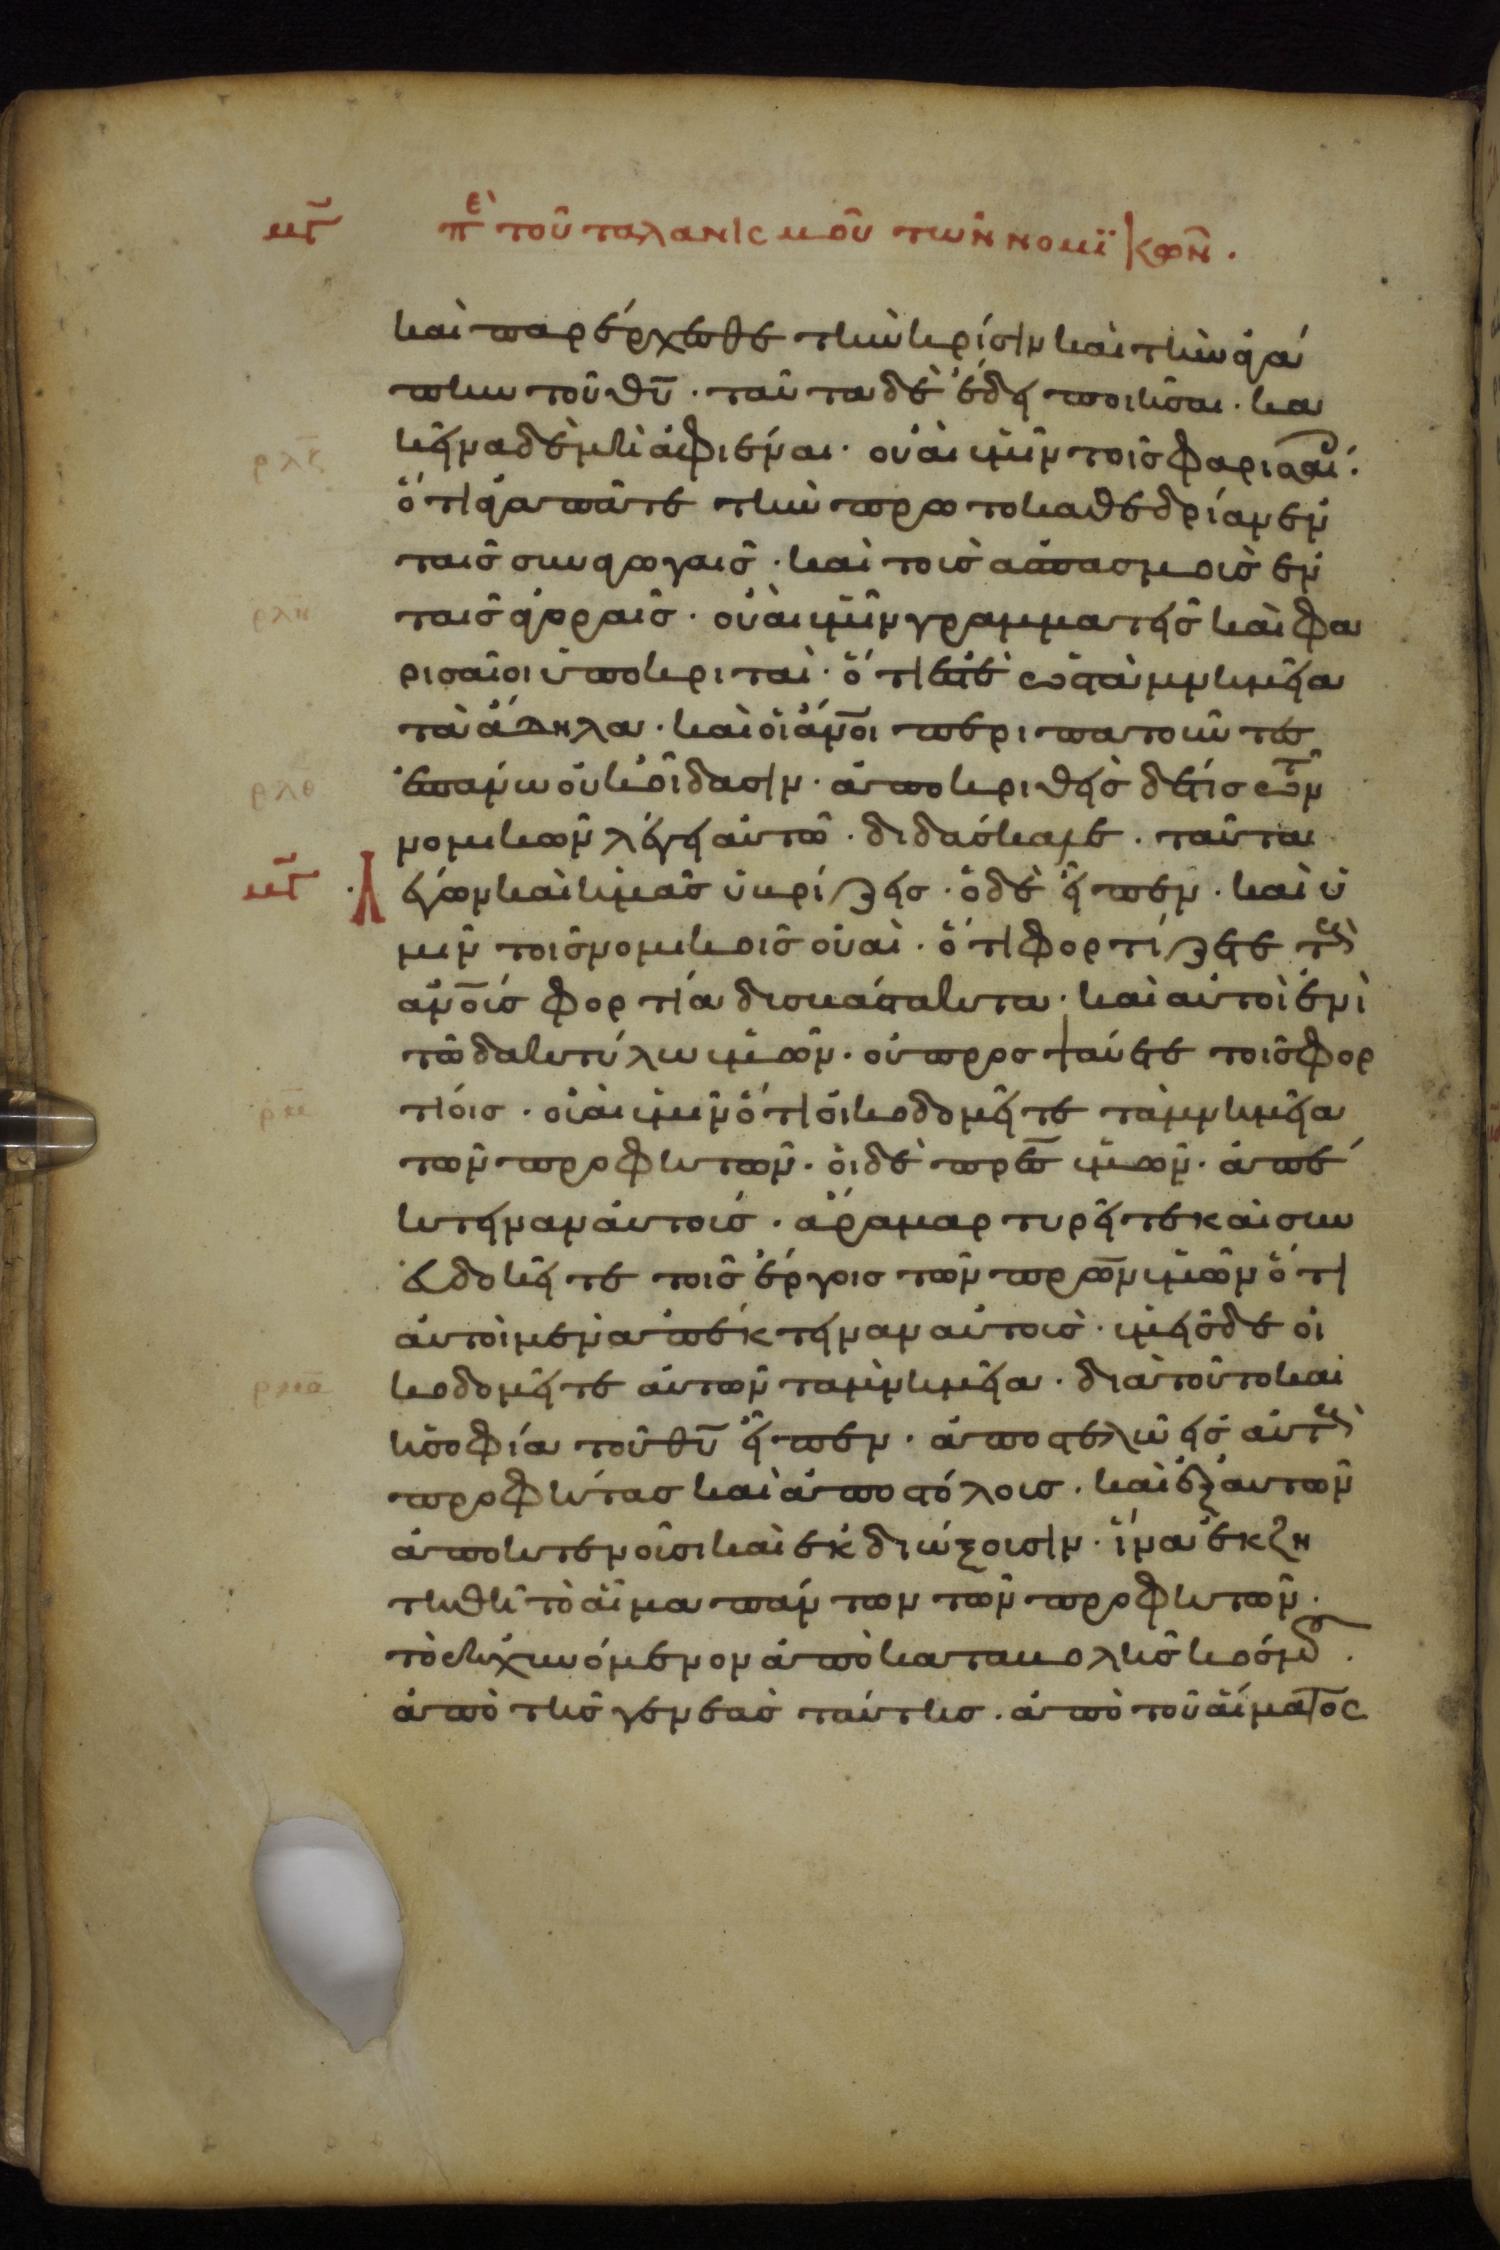 μγ̄ πὲ τοῦ ταλανισμοῦ τῶν νομϊκῶν.
καὶ παρέρχεσθε τὴν κρίσιν καὶ τὴν ἀγά
πην τοῦ θῡ· ταῦτα δὲ ἔδει ποιῆσαι· κα
ρλζ κεῖνα δὲ μὴ ἀφιέναι· οὐαὶ ὑμῖν τοῖς φαρισαί·
ὅτι ἀγαπᾶτε τὴν πρωτοκαθεδρίαν ἐν
ταῖς συναγωγαῖς· καὶ τοὺς ἀσπασμοὺς ἐν
ρλη ταῖς ἀγοραῖς· οὐαὶ ὑμῖν γραμματεῖς καὶ φα
ρισαῖοι ὑποκριταὶ· ὅτι ἐστὲ ὡς τὰ μνημεῖα
τὰ ἄδηλα· καὶ οἱ ἄνοι περιπατοῦντες
ρλθ ἐπάνω οὐκ οἴδασιν· ἀποκριθεὶς δέ τις τῶν
νομικῶν λέγει αὐτῶ· διδάσκαλε· ταῦτα
μγ̄ Λέγων καὶ ἡμᾶς ὑβρίζεις· ὁ δὲ εἶπεν· καὶ ὑ
μῖν τοῖς νομικοῖς οὐαὶ· ὅτι φορτίζετε τοὺς
ἀνοις φορτία δυσβάστακτα· καὶ αὐτοὶ ἑνὶ
τῶ δακτύλω ὑμῶν· οὐ προσψαύετε τοῖς φορ
ρμ τίοις· οὐαὶ ὑμῖν ὅτι οἰκοδομεῖτε τὰ μνημεῖα
τῶν προφητῶν· οἱ δὲ πρε̄ς ὑμῶν· ἀπέ
κτειναν αὐτοὺς· ἄρα μαρτυρεῖτε καὶ συν
ευδοκεῖτε τοῖς ἔργοις τῶν πρω̄ν ὑμῶν ὅτι
αὐτοὶ μὲν ἀπέκτειναν αὐτοὺς· ὑμεῖς δὲ οἰ
ρμα κοδομεῖτε αὐτῶν τὰ μνημεῖα· διὰ τοῦτο καὶ
ἡ σοφία τοῦ θῡ εἶπεν· ἀποστελῶ εἰς αὐτοὺς
προφήτας καὶ ἀποστόλους· καὶ ἐξ αὐτῶν
ἀποκτενοῦσι καὶ ἐκδιώξουσιν· ἵνα ἐκζη
τηθῆ τὸ αἷμα πάντων τῶν προφητῶν·
τὸ ἐκχυνόμενον ἀπὸ καταβολῆς κόσμου·
ἀπὸ τῆς γενεᾶς ταύτης· ἀπὸ τοῦ αἵματος